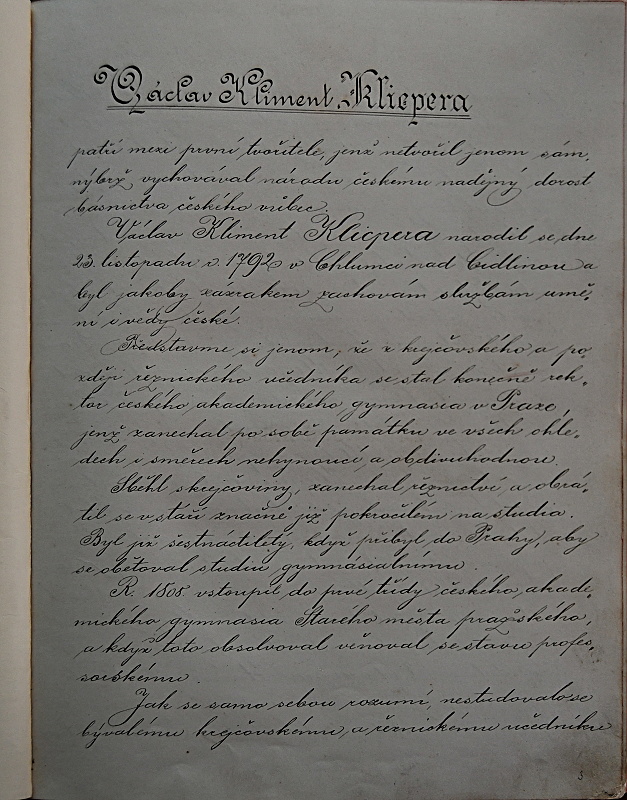 Václav Kliment Klicpera
patří mezi první tvořitele, jenž netvořil jenom sám,
nýbrž vychovával národu českému nadějný dorost
básnictva českého vůbec.
Václav Kliment Klicpera narodil se dne
23. listopadu r. 1792 v Chlumci nad Cidlinou a
byl jakoby zázrakem zachován službám umě-
ní i vědy české.
Představme si jenom, že z krejčovského a po-
zději řeznického učedníka se stal konečně rek-
tor českého akademického gymnasia v Praze,
jenž zanechal po sobě památku ve všech ohle-
dech i směrech nehynoucí a obdivuhodnou.
Sběhl s krejčoviny, zanechal řeznictví a obrá-
til se v stáří značně již pokročilém na studia.
Byl již šestnáctiletý, když přibyl do Prahy, aby
se obětoval studiu gymnásialnímu.
R. 1808 vstoupil do prvé třídy českého akade-
mického gymnasia Starého města pražského,
a když toto absolvoval věnoval se stavu profes-
sorskému.
Jak se samo sebou rozumí, nestudovalo se
bývalému krejčovskému, a řeznickému učedníku
3